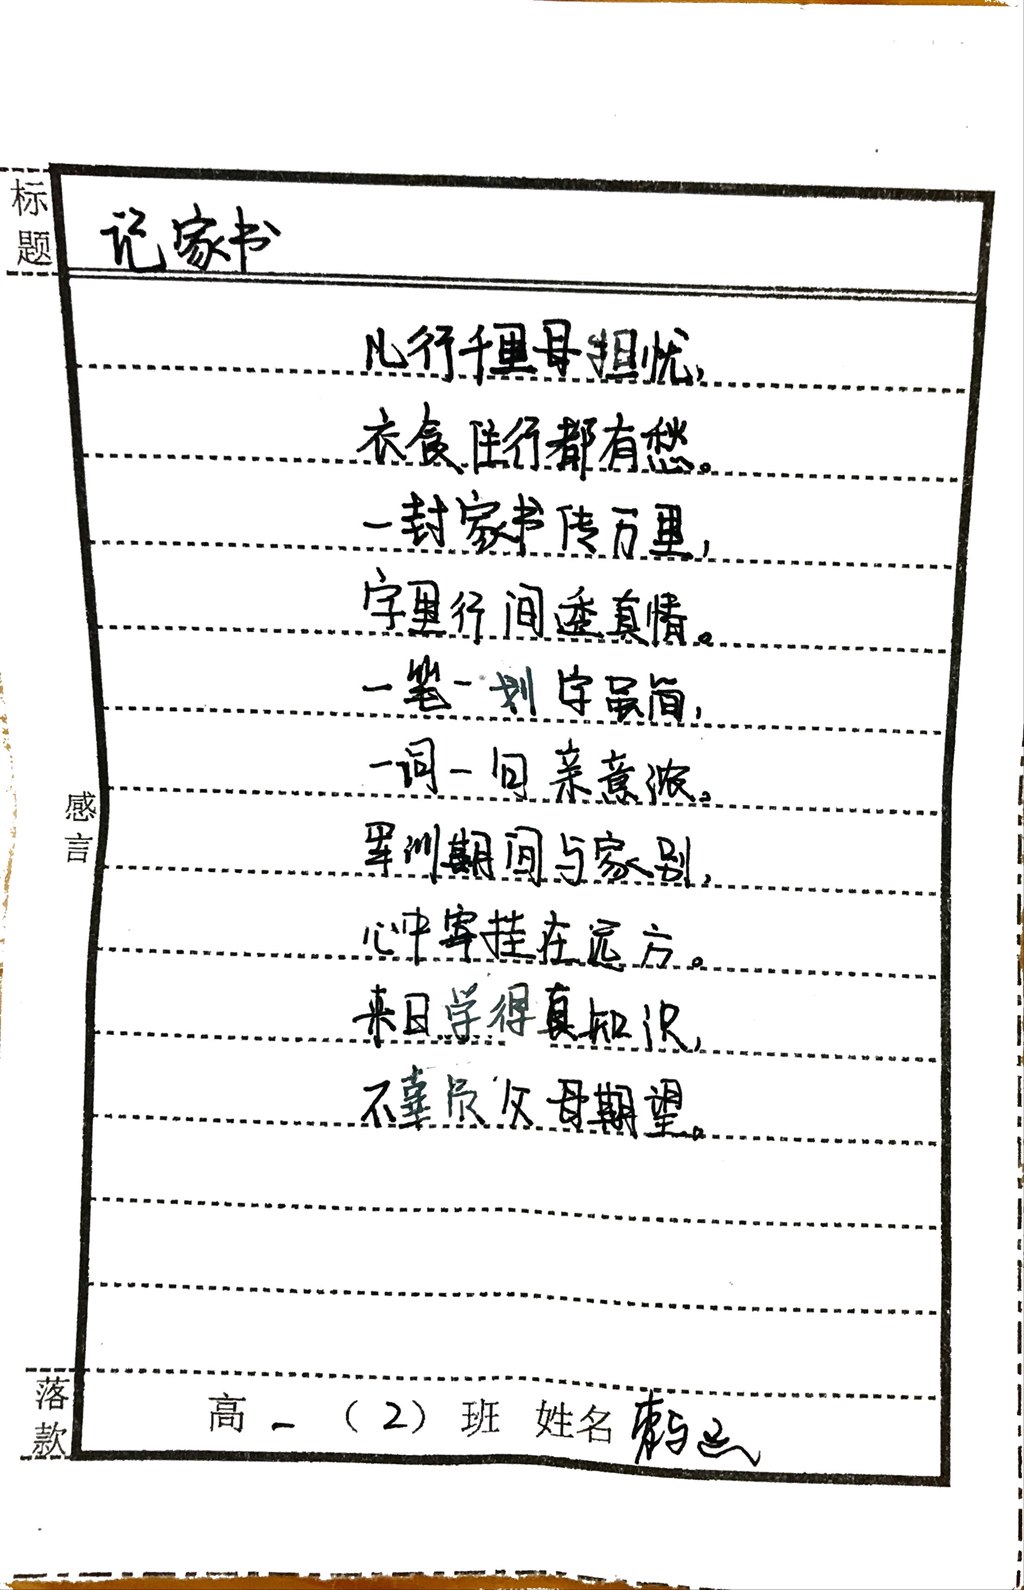 标题
记家书
儿行千里母担忧，
衣食住行都有愁。
一封家书传万里，
字里行间透真情。
一笔一划字虽简，
一词一句亲意浓。
感言
军训期间与家别，
心中牵挂在远方。
来日学得真知识，
不辜负父母期望。
落款
高一（2）班 姓名